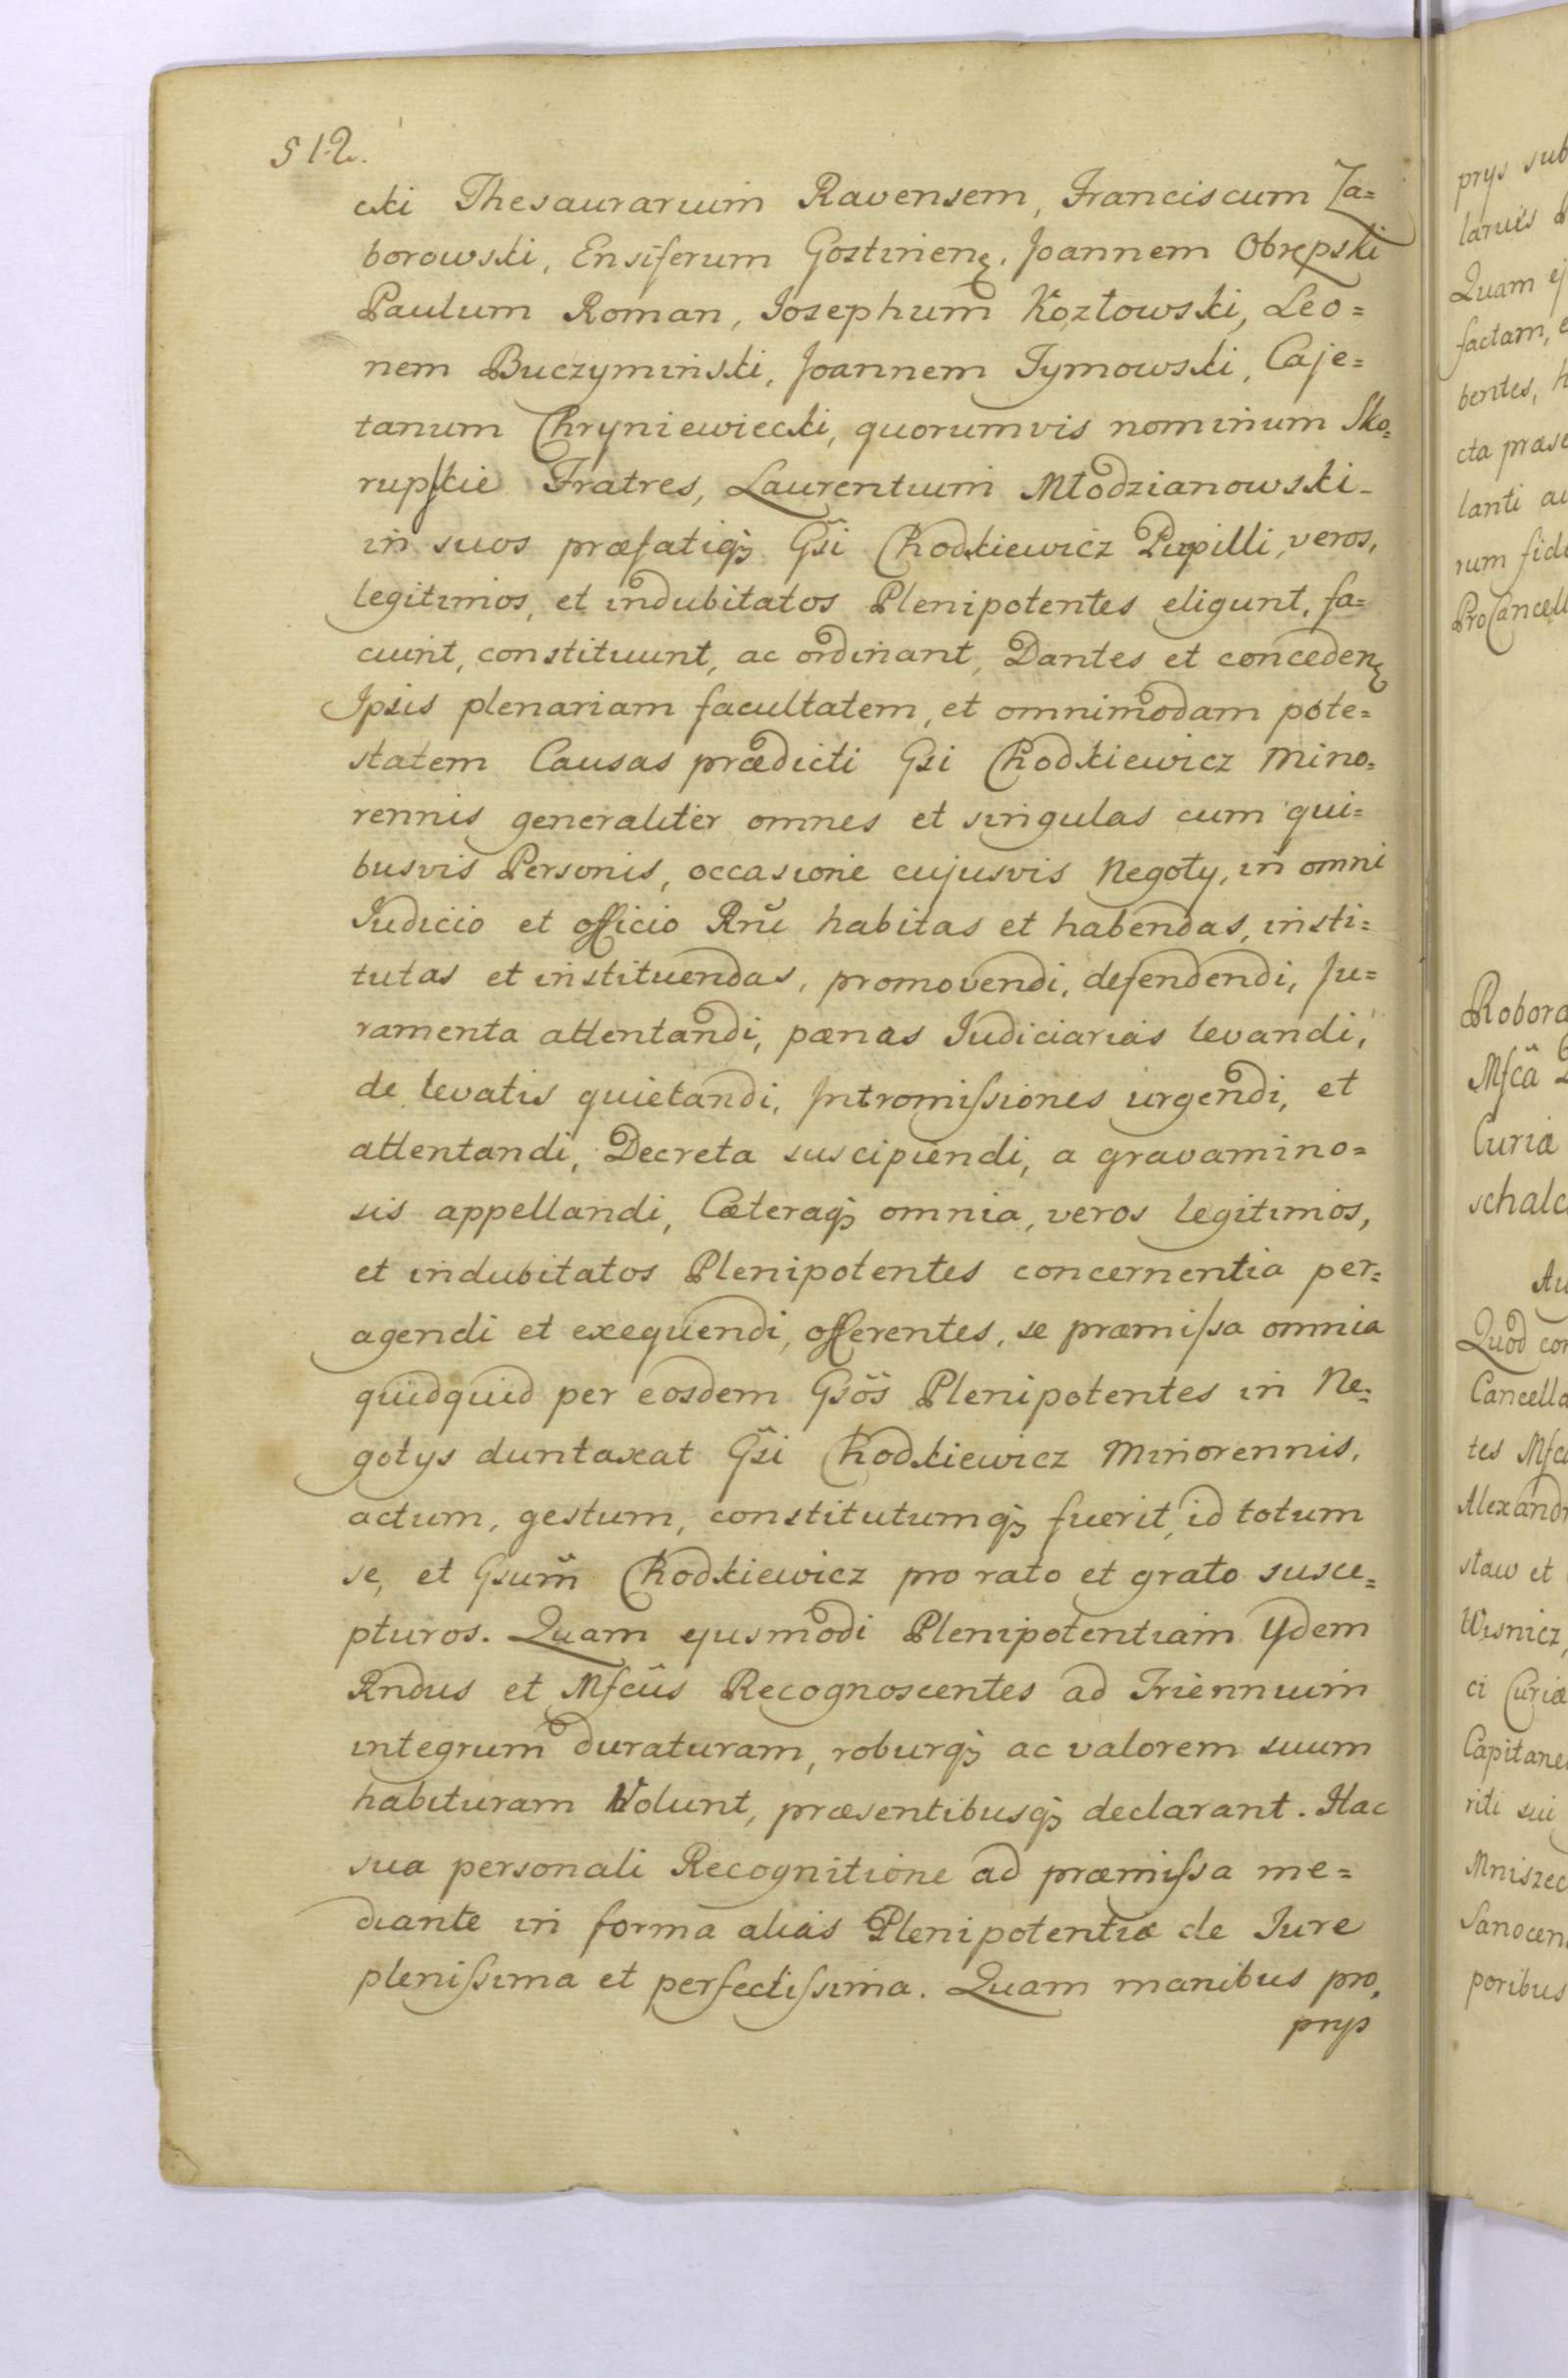 512.
cki Thesaurarium Ravensem, Franciscum Za=
borowski, Ensiferum Gostinienę. Joannem Obrępski
Paulum Roman, Josephum Kozłowski, Leo=
nem Buczyminski, Joannem Tymowski, Caje=
tanum Chryniewiecki, quorumvis nominum Sko=
rupſkie Fratres, Laurentium Młodzianowski
in suos præfatiqꝫ Gsi Chodkiewicz Pupilli, veros,
legitimos, et indubitatos Plenipotentes eligunt, fa=
ciunt, constituunt, ac ordinant, Dantes et concedenę
Ipsis plenariam facultatem, et omnimodam pote=
statem Causas prædicti Gsi Chodkiewicz Mino=
rennis generaliter omnes et singulas cum qui=
busvis Personis, occasione cujusvis Negoty, in omni
Judicio et officio Rnũ habitas et habendas, insti=
tutas et instituendas, promovendi, defendendi, Ju=
ramenta attentandi, pænas Judiciarias levandi,
de levatis quietandi, Intromiſsiones urgendi, et
attentandi, Decreta suscipiendi, a gravamino=
sis appellandi, Cæteraqꝫ omnia, veros legitimos,
et indubitatos Plenipotentes concernentia per=
agendi et exequendi, offerentes, se præmiſsa omnia
quidquid per eosdem Gsõs Plenipotentes in Ne=
gotys duntaxat Gsi Chodkiewicz Minorennis,
actum, gestum, constitutumqꝫ fuerit, id totum
se, et Gsum̃ Chodkiewicz pro rato et grato susce=
pturos. Quam ejusmodi Plenipotentiam Ydem
Rndus et Mfcũs Recognoscentes ad Triennium
integrum duraturam, roburqꝫ ac valorem suum
habituram Volunt, præsentibusqꝫ declarant. Hac
sua personali Recognitione ad præmiſsa me=
diante in forma alias Plenipotentiæ de Jure
pleniſsima et perfectiſsima. Quam manibus pro=
prys
prys sub
Quam ej
factam, e
bentes, h
cta præse
lanti au
rum fide
ProCancell
Robora
Mfcã
Curiæ
schalc
Au
Quod con
Cancella
tes Mfc
Alexandr
staw et
Wisnicz,
ci Curiæ
Capitane
riti sui
Mniszec
Sanocen
poribus